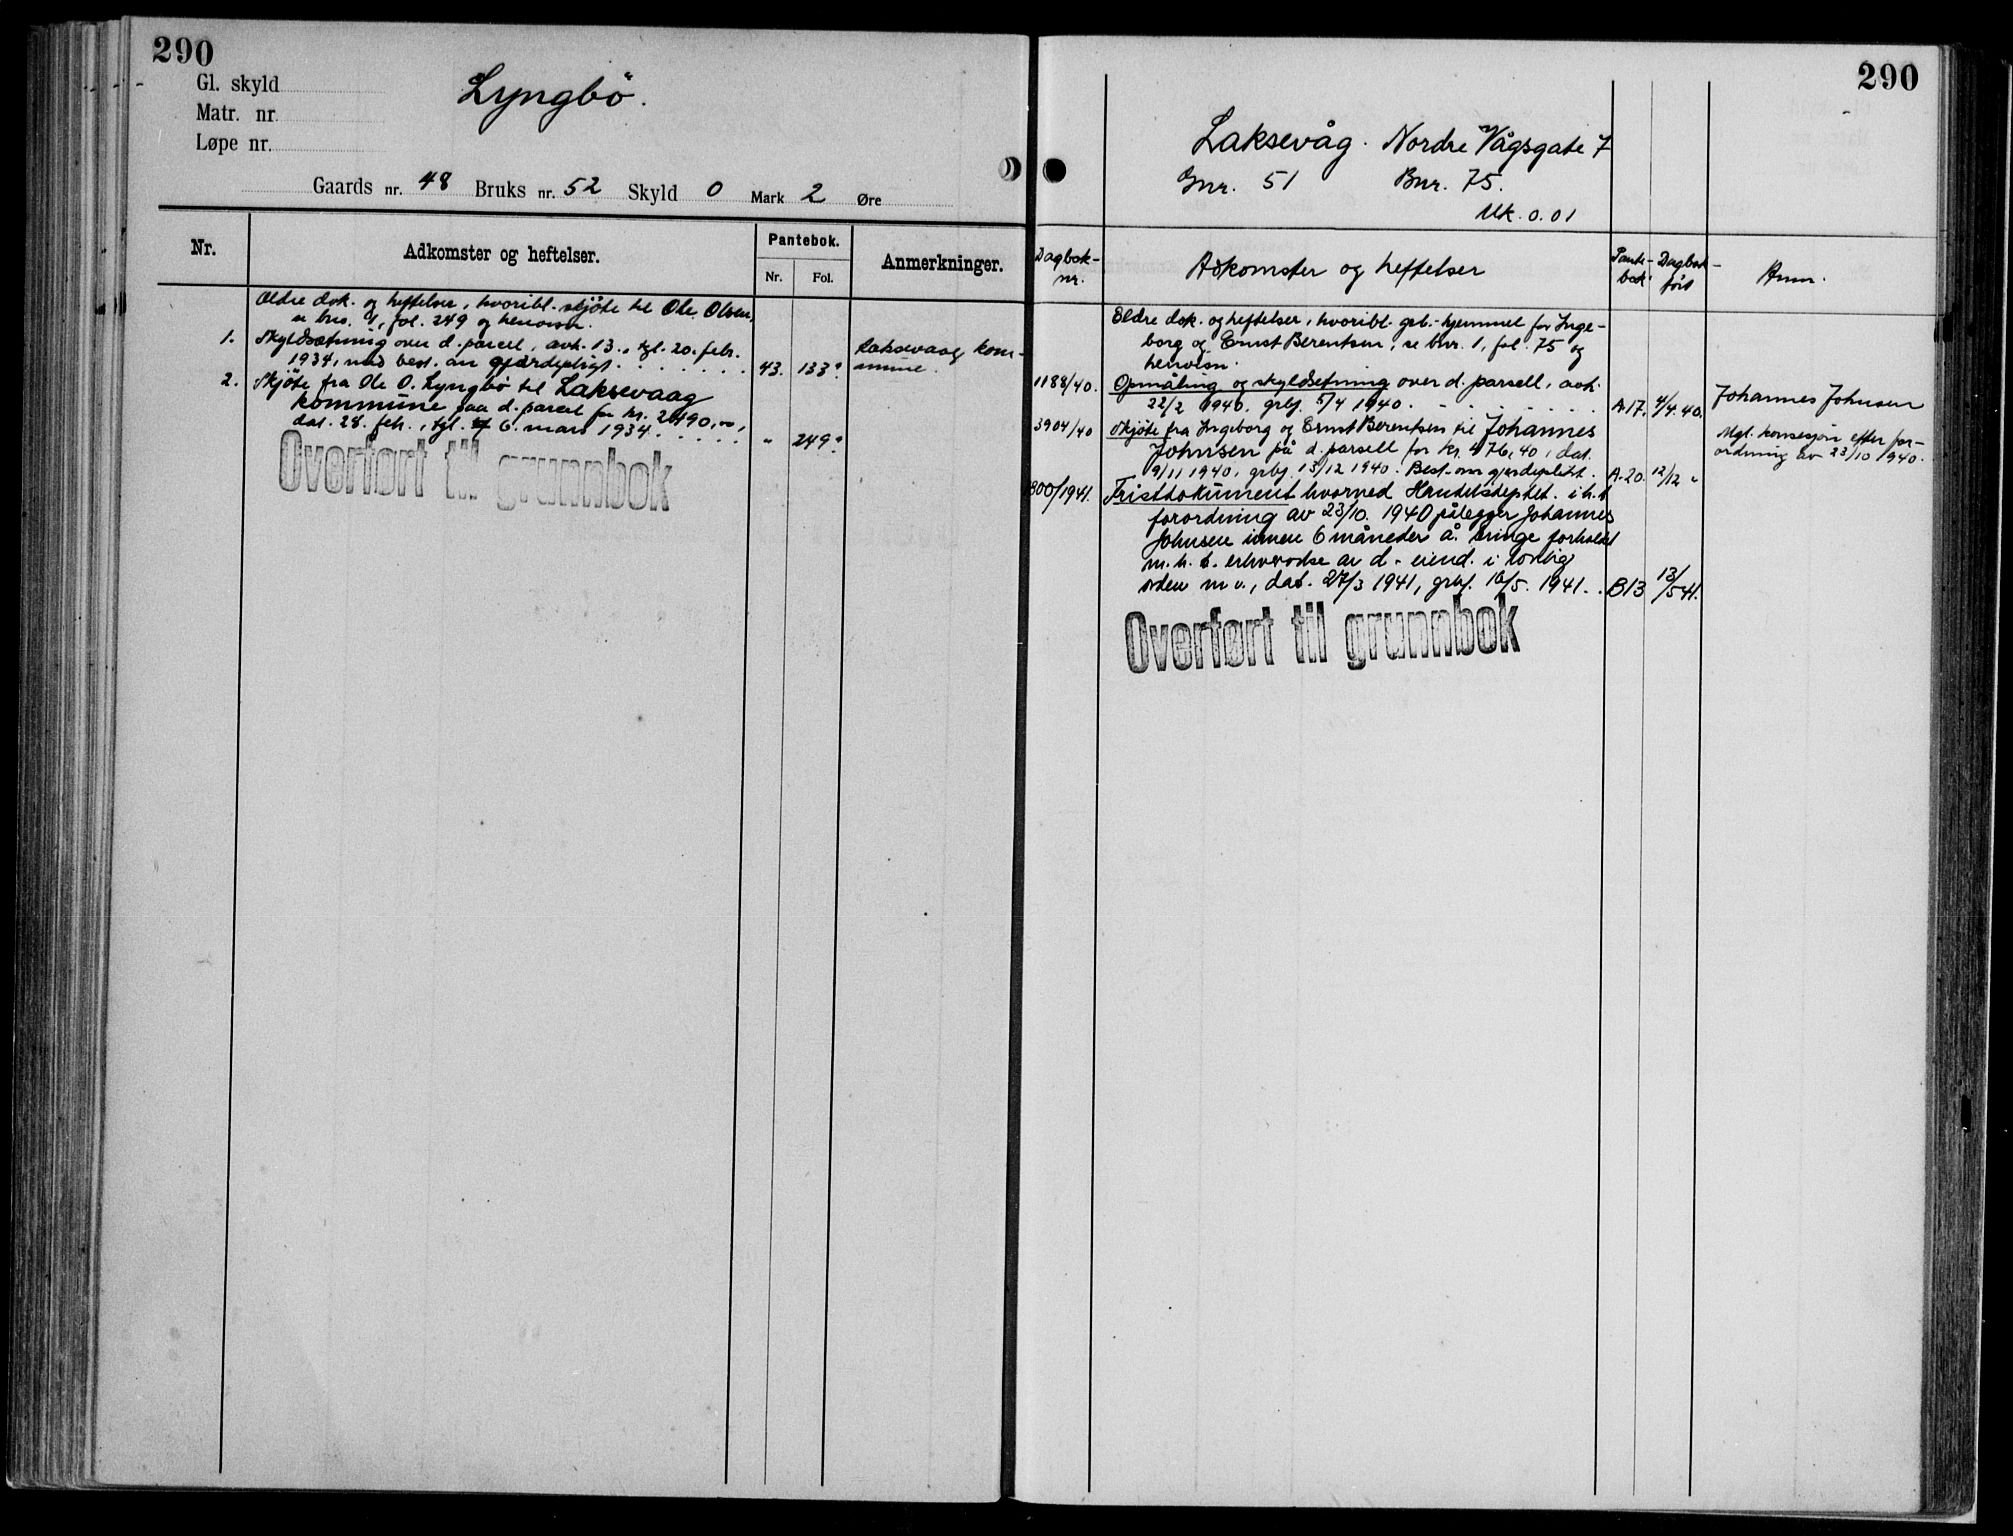 290
Gl. skyld
Matr. nr.
Løpe nr.
Lyngbö.
Gaards nr. 48 Bruks nr. 52 Skyld 0 Mark 2 Øre
Nr.
Adkomster og heftelser.
Pantebok.
Nr.
Fol.
Anmerkninger.
Ældre dok. og heftelser, hvoribl. skjöte til Ole Olsen,
se bno. 4, fol. 249 og henvisn.
1. Skyldsætning over d. parcel, avh. 13., tgl. 20. febr.
1934, med best. om gjærdepligt. 43. 133.
Laksevaag kom-
mune.
2. Skjöte fra Ole O. Lyngbö til Laksevaag
kommune paa d. parcel for kr. 2490,00,
dat. 28. feb., tgl. 6. mars 1934. " 249.
Overført til grunnbok
290
Laksevåg. Nordre Vågsgate 7
Gnr. 51 Bnr. 75.
Mk. 0.01
Dagbok-
nr.
Adkomster og heftelser
Pante-
bok
Dagbok-
ført
Anm.
Eldre dok. og heftelser, hvoribl. grb.-hjemmel for Inge-
borg og Ernst Berentsen, se bnr. 1, fol. 75 og
henvisn.
1188/40. Opmåling og skyldsetning over d. parsell, avh.
22/2 1940, grbf. 5/4 1940. A-17. 4/4.40.
Johannes Johnsen
3904/40 Skjöte fra Ingeborg og Ernst Berentsen til Johannes
Johnsen på d. parsell for kr. 476,40, dat.
9/11 1940, grbf. 13/12 1940. Best. om gjerdeplikt. A-20. 12/12 "
Mgl. konsesjon efter for-
ordning av 23/10 1940.
1800/1941. Fristdokument hvorved Handelsdeptet. i h.t.
forordning av 23/10. 1940 pålegger Johannes
Johnsen innen 6 måneder å bringe forholdet
m.h.t. erhvervelse av d. eiend. i lovlig
orden m.v., dat. 27/3 1941, grbf. 16/5. 1941. B13 13/5 41.
Overført til grunnbok